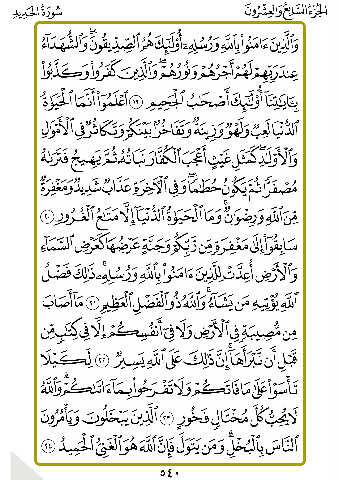 الجزء السابع والعشرون سورة الحديد
وَالَّذِينَ ءَامَنُوا۟ بِاللَّهِ وَرُسُلِهِۦٓ أُو۟لَٰٓئِكَ هُمُ الصِّدِّيقُونَ ۖ وَالشُّهَدَآءُ
عِندَ رَبِّهِمْ لَهُمْ أَجْرُهُمْ وَنُورُهُمْ ۖ وَالَّذِينَ كَفَرُوا۟ وَكَذَّبُوا۟
بِـَٔايَٰتِنَآ أُو۟لَٰٓئِكَ أَصْحَٰبُ الْجَحِيمِ ﴿١٩﴾ اعْلَمُوٓا۟ أَنَّمَا الْحَيَوٰةُ
الدُّنْيَا لَعِبٌ وَلَهْوٌ وَزِينَةٌ وَتَفَاخُرٌۢ بَيْنَكُمْ وَتَكَاثُرٌ فِى الْأَمْوَٰلِ
وَالْأَوْلَٰدِ ۖ كَمَثَلِ غَيْثٍ أَعْجَبَ الْكُفَّارَ نَبَاتُهُۥ ثُمَّ يَهِيجُ فَتَرَىٰهُ
مُصْفَرًّا ثُمَّ يَكُونُ حُطَٰمًا ۖ وَفِى الْءَاخِرَةِ عَذَابٌ شَدِيدٌ وَمَغْفِرَةٌ
مِّنَ اللَّهِ وَرِضْوَٰنٌ ۚ وَمَا الْحَيَوٰةُ الدُّنْيَآ إِلَّا مَتَٰعُ الْغُرُورِ ﴿٢٠﴾
سَابِقُوٓا۟ إِلَىٰ مَغْفِرَةٍ مِّن رَّبِّكُمْ وَجَنَّةٍ عَرْضُهَا كَعَرْضِ السَّمَآءِ
وَالْأَرْضِ أُعِدَّتْ لِلَّذِينَ ءَامَنُوا۟ بِاللَّهِ وَرُسُلِهِۦ ۚ ذَٰلِكَ فَضْلُ
اللَّهِ يُؤْتِيهِ مَن يَشَآءُ ۚ وَاللَّهُ ذُو الْفَضْلِ الْعَظِيمِ ﴿٢١﴾ مَآ أَصَابَ
مِن مُّصِيبَةٍ فِى الْأَرْضِ وَلَا فِىٓ أَنفُسِكُمْ إِلَّا فِى كِتَٰبٍ مِّن
قَبْلِ أَن نَّبْرَأَهَآ ۚ إِنَّ ذَٰلِكَ عَلَى اللَّهِ يَسِيرٌ ﴿٢٢﴾ لِّكَيْلَا
تَأْسَوْا۟ عَلَىٰ مَا فَاتَكُمْ وَلَا تَفْرَحُوا۟ بِمَآ ءَاتَىٰكُمْ ۗ وَاللَّهُ
لَا يُحِبُّ كُلَّ مُخْتَالٍ فَخُورٍ ﴿٢٣﴾ الَّذِينَ يَبْخَلُونَ وَيَأْمُرُونَ
النَّاسَ بِالْبُخْلِ ۗ وَمَن يَتَوَلَّ فَإِنَّ اللَّهَ هُوَ الْغَنِىُّ الْحَمِيدُ ﴿٢٤﴾
٥٤٠